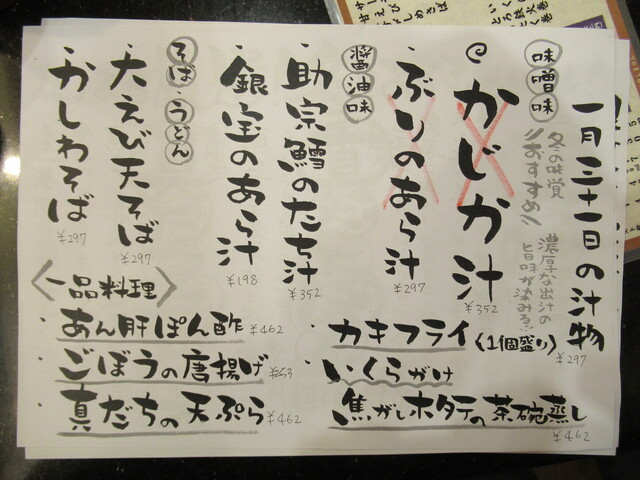 一月三十一日の汁物
味噌味
冬の味覚
おすすめ
かじか汁
¥352
濃厚な出汁の
旨味が決みる!
ぶりのあら汁
¥297
醤油味
助宗鱈のたち汁
¥352
銀宝のあら汁
¥198
そば うどん
大えび天そば
¥297
かしわそば
¥297
〈一品料理〉
・あん肝ぽん酢 ¥462
・ごぼうの唐揚げ ¥253
・真だちの天ぷら ¥462
・カキフライ(1個盛り) ¥297
・いくらがけ
・焦がしホタテの茶碗蒸し
¥462